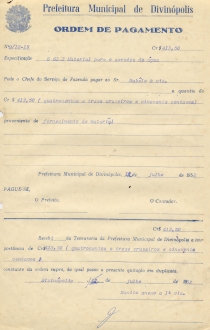 Prefeitura Municipal de Divinópolis
ORDEM DE PAGAMENTO
Cr$ 413,50
Material para o serviço de água
Pede o Chefe do Serviço de Fazenda pagar ao Snr.
a quantia de
Cr $ 413,50 ( quatrocentos e treze cruzeiros e cincoenta centavos)
proveniente de fornecimento de material
Prefeitura Municipal de Divinópolis, de julho de 195
PAGUE-SE.
O Prefeito, O Contador,
Cr$ 413,50
Recebi da Tesouraria da Prefeitura Municipal de Divinópolis a im-
portância de Cr$ 413,50 ( quatrocentos e treze cruzeiros e cincoenta
centavos )
constante da ordem supra, do qual passo a presente quitação em duplicata.
Divinópolis julho de 195